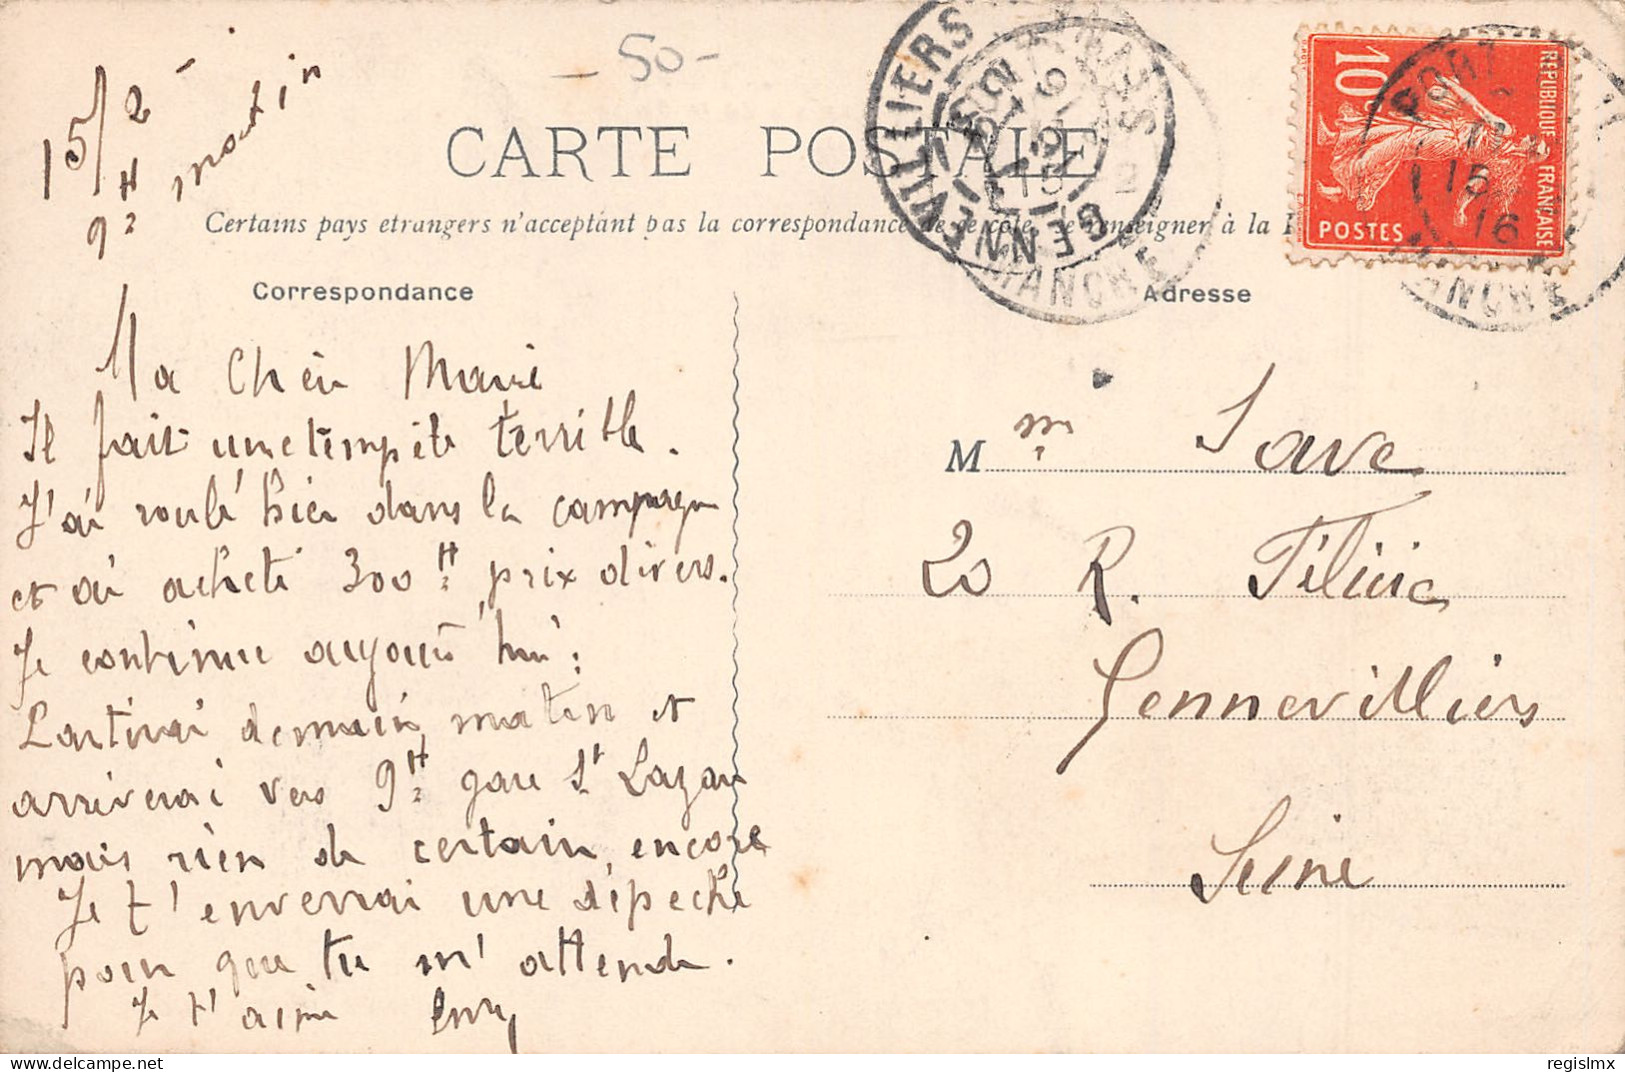 15/2
9H matin
50-
CARTE POSTALE
Certains pays etrangers n'acceptant pas la correspondance de ce côté, se renseigner à la
Correspondance
Adresse
Ma Chèr Marie
Il fait une tempête terrible.
J'ai roulé hier dans la campagne
et ai acheté 300H prix divers.
Je continue aujourd'hui.
Partirai demain matin et
arriverai vers 9H gare St Lazare
mais rien de certain, encore
Je t'enverrai une dépeche
pour que tu m'attende.
Je t'aime
Mme Save
20 R. Félicie
Gennevilliers
Seine
10c
REPUBLIQUE FRANÇAISE
POSTES
PORT
15
16
MANCHE
GENNEVILLIERS
MANCHE
regislmx